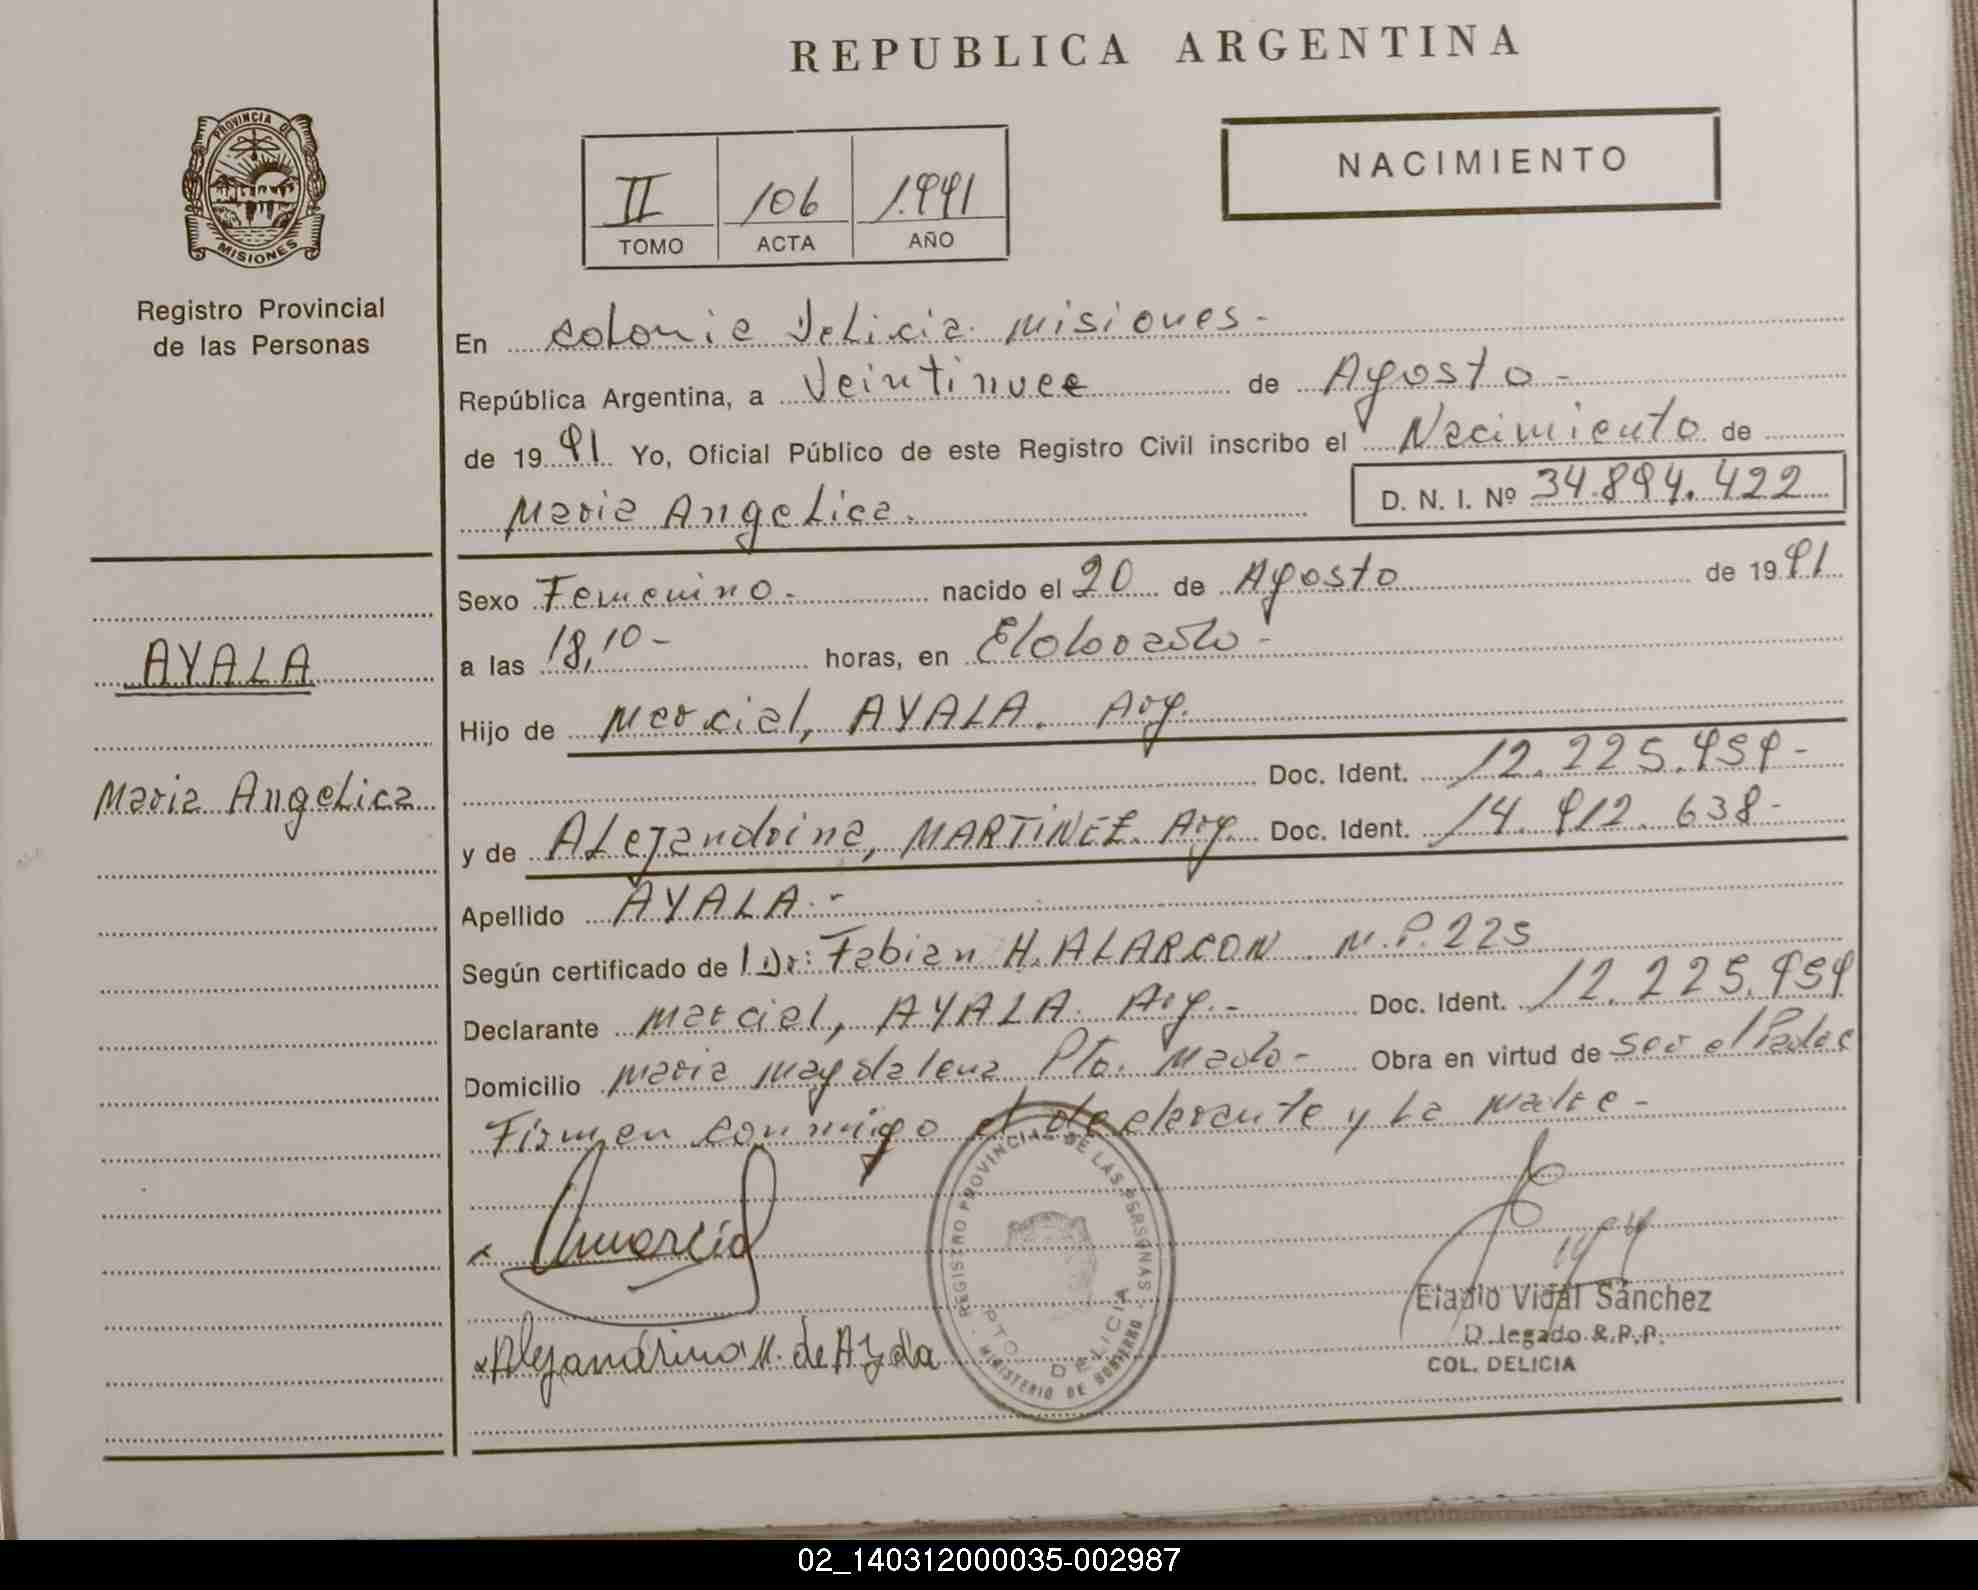 REPUBLICA ARGENTINA
PROVINCIA DE
MISIONES
Registro Provincial
de las Personas
NACIMIENTO
II 106 1.991
TOMO ACTA AÑO
En Colonia Delicia Misiones.-
República Argentina, a Veintinuee de Agosto-
de 1991 Yo, Oficial Público de este Registro Civil inscribo el Nacimiento de
Maria Angelica. D. N. I. Nº 34.894.422
AYALA
Maria Angelica
Sexo Femenino.- nacido el 20 de Agosto de 1991
a las 18,10- horas, en Eldorado-
Hijo de Marcial, AYALA. Arg.
Doc. Ident. 12.225.959-
y de Alejandrina, MARTINEZ. Arg. Doc. Ident. 14.912.638-
Apellido AYALA.-
Según certificado de Dr: Fabian H. ALARCON. M.P.225
Declarante Marcial, AYALA. Arg.- Doc. Ident. 12.225.959
Domicilio Maria Magdalena Pto. Mado- Obra en virtud de ser el Padre
Firman conmigo el declarante y la Madre-
REGISTRO PROVINCIAL DE LAS PERSONAS
PTO DELICIA
MINISTERIO DE GOBIERNO
Alejandrina M. de Ayala
Eladio Vidal Sánchez
D legado R.P.P.
COL. DELICIA
02_140312000035-002987